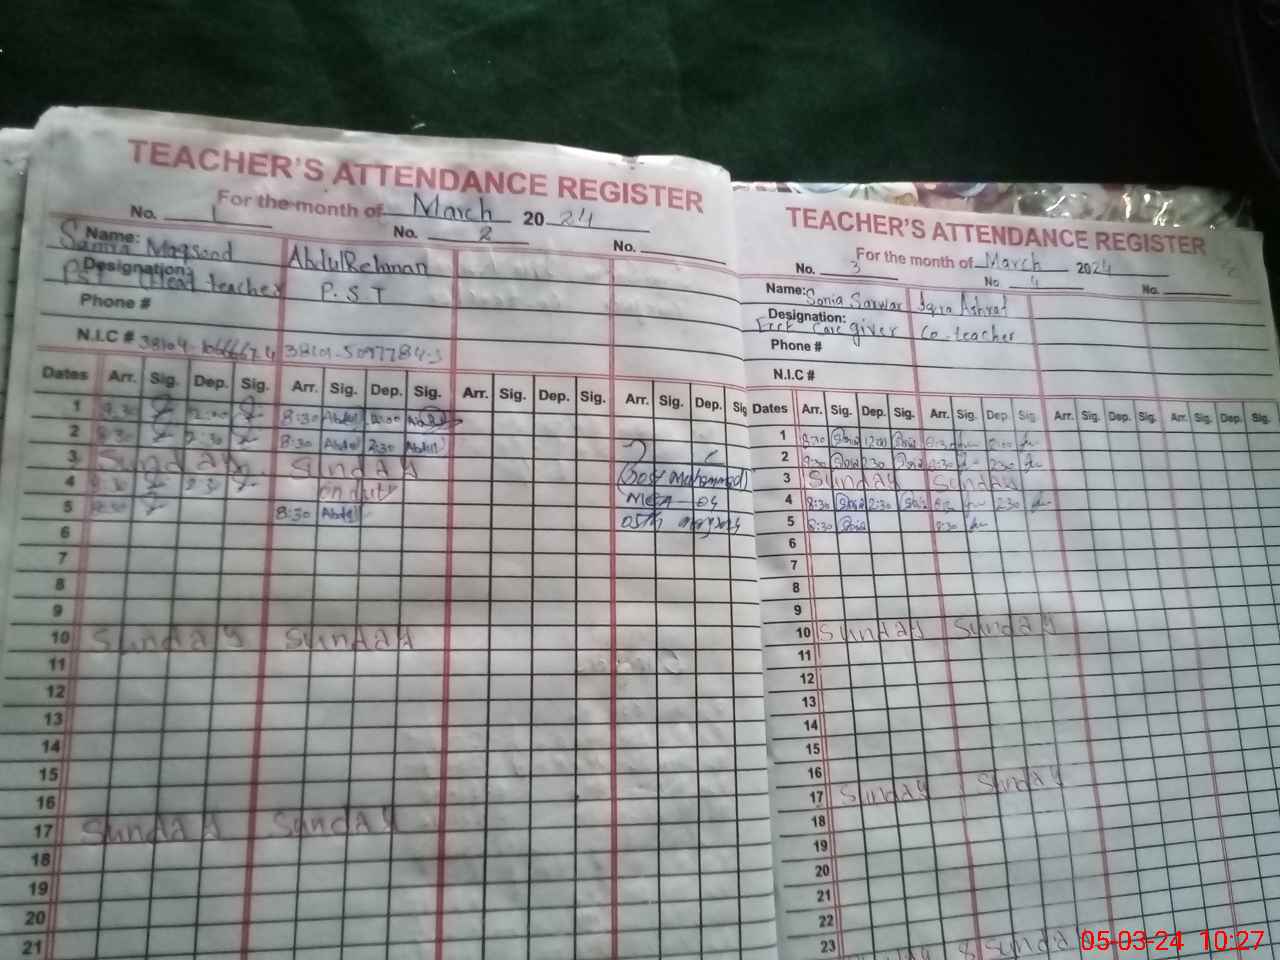 TEACHER'S ATTENDANCE REGISTER
For the month of March 20 24
No. 1 No. 2 No.
Name: Samia Maqsood Abdul Rehman
Designation: PST (Head teacher P.S.T
Phone #
N.I.C #
Dates Arr. Sig. Dep. Sig. Arr. Sig. Dep. Sig. Arr. Sig. Dep. Sig. Arr. Sig. Dep. Sig
1 8:30 12:00 8:30 Abdul 12:00
2 8:30 2:30 8:30 Abdul 2:30 Abdul
3 Sunday Sunday
4 8:30 2:30 on duty
5 8:30 8:30 Abdul
Dost Muhammad
MEA-04
05th
6
7
8
9
10 Sunday Sunday
11
12
13
14
15
16
17 Sunday Sunday
18
19
20
21
TEACHER'S ATTENDANCE REGISTER
For the month of March 2024
No. 3 No 4 No.
Name: Sonia Sarwar Iqra Ashraf
Designation: care giver Co-teacher
Phone #
N.I.C #
Dates Arr. Sig. Dep. Sig. Arr. Sig. Dep. Sig. Arr. Sig. Dep. Sig. Arr. Sig. Dep. Sig.
1 8:30 Sonia 12:00 Sonia 8:30 12:00
2 8:30 Sonia 2:30 Sonia 8:30 2:30
3 Sunday Sunday
4 8:30 Sonia 2:30 Sonia 8:30 2:30
5 8:30 Sonia 8:30
6
7
8
9
10 Sunday Sunday
11
12
13
14
15
16
17 Sunday Sunday
18
19
20
21
22
23
Sunday
05-03-24 10:27